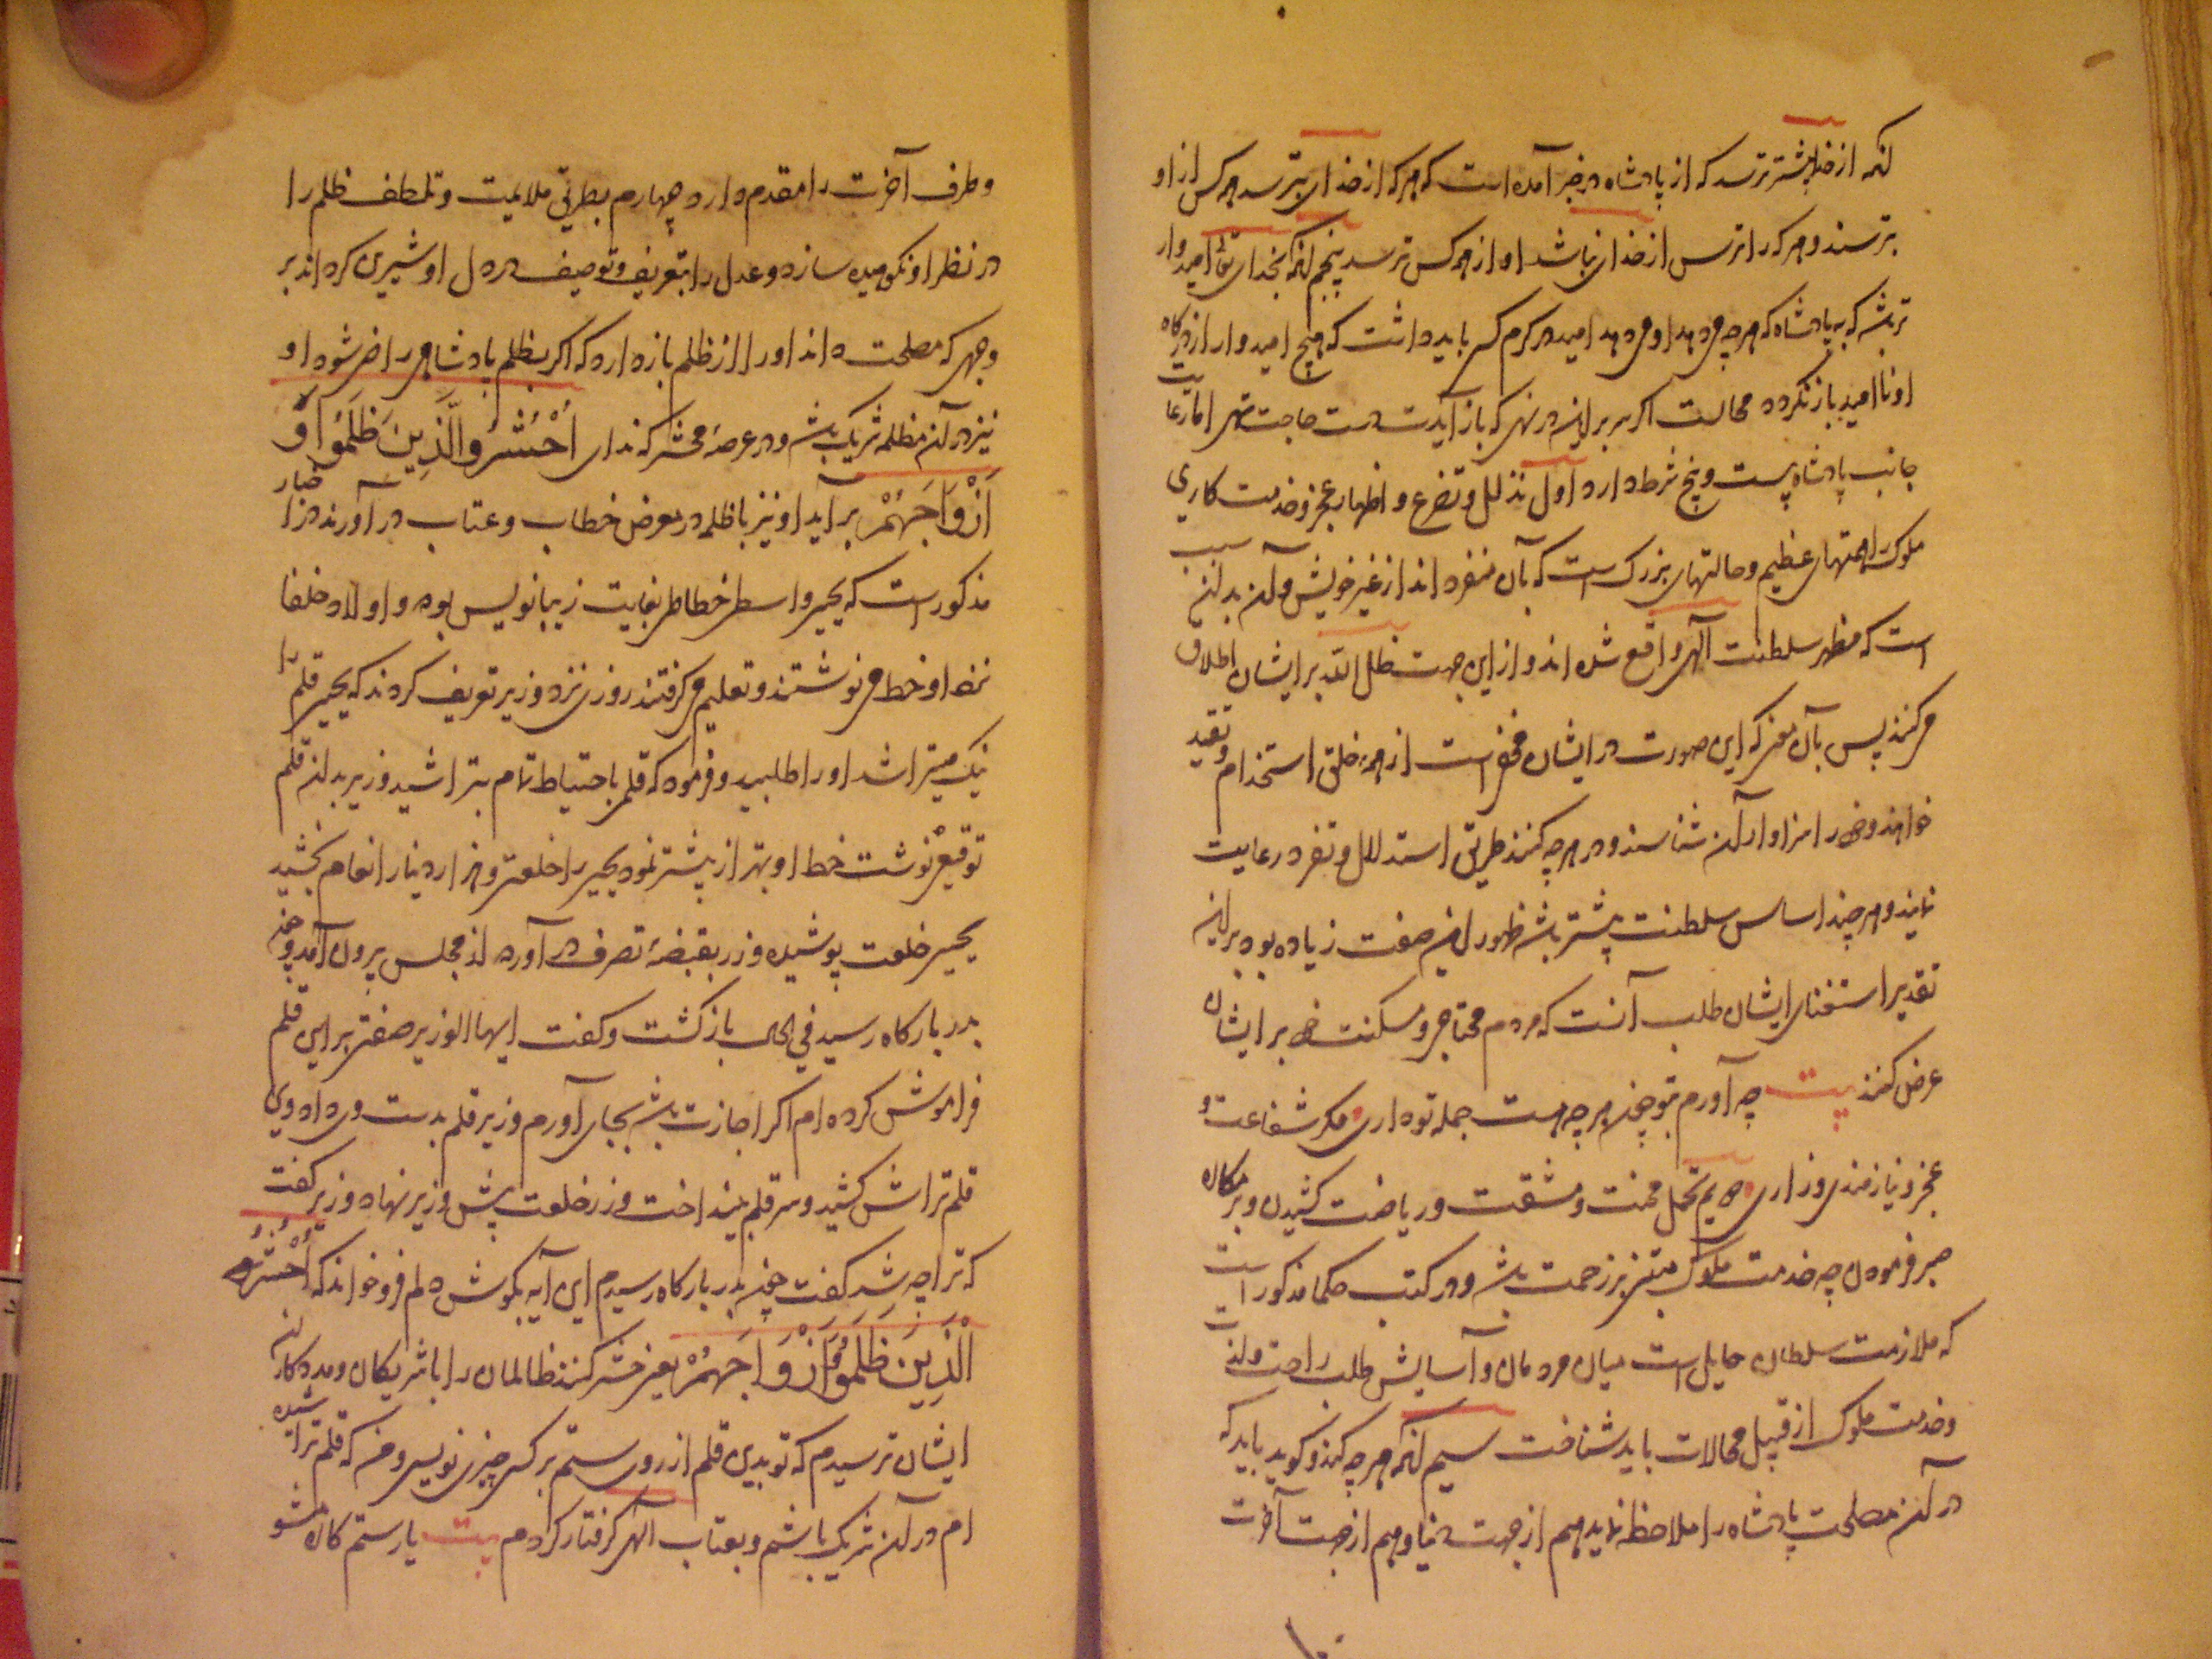 آنکه از خدا بیشتر ترسد که از پادشاه در خبر آمده است که هر که از خدای بترسد همه کس از او
بترسند و هر که را ترس از خدای نباشد او از همه کس ترسد پنجم آنکه بخدای تعالی امیدوار
تر باشد که به پادشاه که هر چه می دهد او می دهد امید در کرم کسی باید داشت که هیچ امیدوار از درگاه
او ناامید باز نگردد محالست اگر سر برین در نهی که باز آیدت دست حاجت تهی اما رعایت
جانب پادشاه بیست و پنج شرط دارد اول تذلل و تضرع و اظهار عجز و خدمت کاری
ملوک را همتهای عظیم و حالتهای بزرگ است که بآن منفرد اند از غیر خویش و آن بدان سبب
است که مظهر سلطنت الهی واقع شده اند و از این جهت ظل الله بر ایشان اطلاق
می کنند پس بآن معنی که این صورت در ایشان مخفی است از همه خلق استخدام و تعبد
خواهند و خود را سزاوار آن شناسند و در هر چه کنند طریق استدلال و تفرد رعایت
نمایند و هر چند اساس سلطنت بیشتر باشد ظهور این صفت زیاده بود برین
تقدیر استغنای ایشان طلب آنست که مردم محتاجی و مسکنت خود بر ایشان
عرض کنند بیت چه آورم بتو چون هر چه هست جمله تو داری مگر شفاعت و
عجز و نیازمندی و زاری دویم تحمل محنت و مشقت و ریاضت کشیدن و بر مکاره
صبر فرمودن چه خدمت ملوک مبتنی بر زحمت باشد و در کتب حکما مذکور است
که ملازمت سلطان حایل است میان مردمان و آسایش طلب راحت و لذت
و خدمت ملوک از قبیل محالات باید شناخت سیم آنکه هر چه کند و گوید باید که
در آن مصلحت پادشاه را ملاحظه نماید هم از جهت دنیا و هم از جهت آخرت
و طرف آخرت را مقدم دارد چهارم بطریق ملایمت و تلطف ظلم را
در نظر او نکوهیده سازد و عدل را بتعریف و توصیف در دل او شیرین گرداند بر
وجهی که مصلحت داند او را از ظلم باز دارد که اگر بظلم پادشاهی راضی شود او
نیز در آن مظلمه شریک باشد و در عرصهٔ محشر که ندای اُحْشُرُوا الَّذِینَ ظَلَمُوا وَ
اَزْوَاجَهُمْ بر آید او نیز با ظلمه در معرض خطاب و عتاب در آورند در اخبار
مذکور است که یحیی واسطی خطاطی بغایت زیبا نویس بود و اولاد خلفا
نزد او خط می نوشتند و تعلیم می گرفتند روزی نزد وزیر تعریف کردند که یحیی قلم را
نیک میتراشد او را طلبید و فرمود که قلمی باحتیاط تمام بتراشید وزیر بدان قلم
توقیعی نوشت خط او بهتر از پیشتر نمود یحیی را خلعتی و هزار دینار انعام بخشید
یحیی خلعت پوشیده و زر بقبضهٔ تصرف در آورد از مجلس بیرون آمد و چون
بدر بارگاه رسید فی الحال باز گشت و گفت ایها الوزیر صفتی بر این قلم
فراموش کرده ام اگر اجازت باشد بجای آورم وزیر قلم بدست وی داد وی
قلم تراش کشید و سر قلم بینداخت و زر خلعت پیش وزیر نهاد وزیر گفت
که ترا چه شد گفت چون بدر بارگاه رسیدم این آیه بگوش دلم فرو خواند که اُحْشُرُوا
الَّذِینَ ظَلَمُوا وَاَزْوَاجَهُمْ یعنی حشر کنند ظالمان را با شریکان و مددکاران
ایشان ترسیدم که تو بدین قلم از روی ستم بر کسی چیزی نویسی و من که قلم تراشیده
ام در آن شریک باشم و بعتاب الهی گرفتار گردم بیت یار ستم کاره مشو